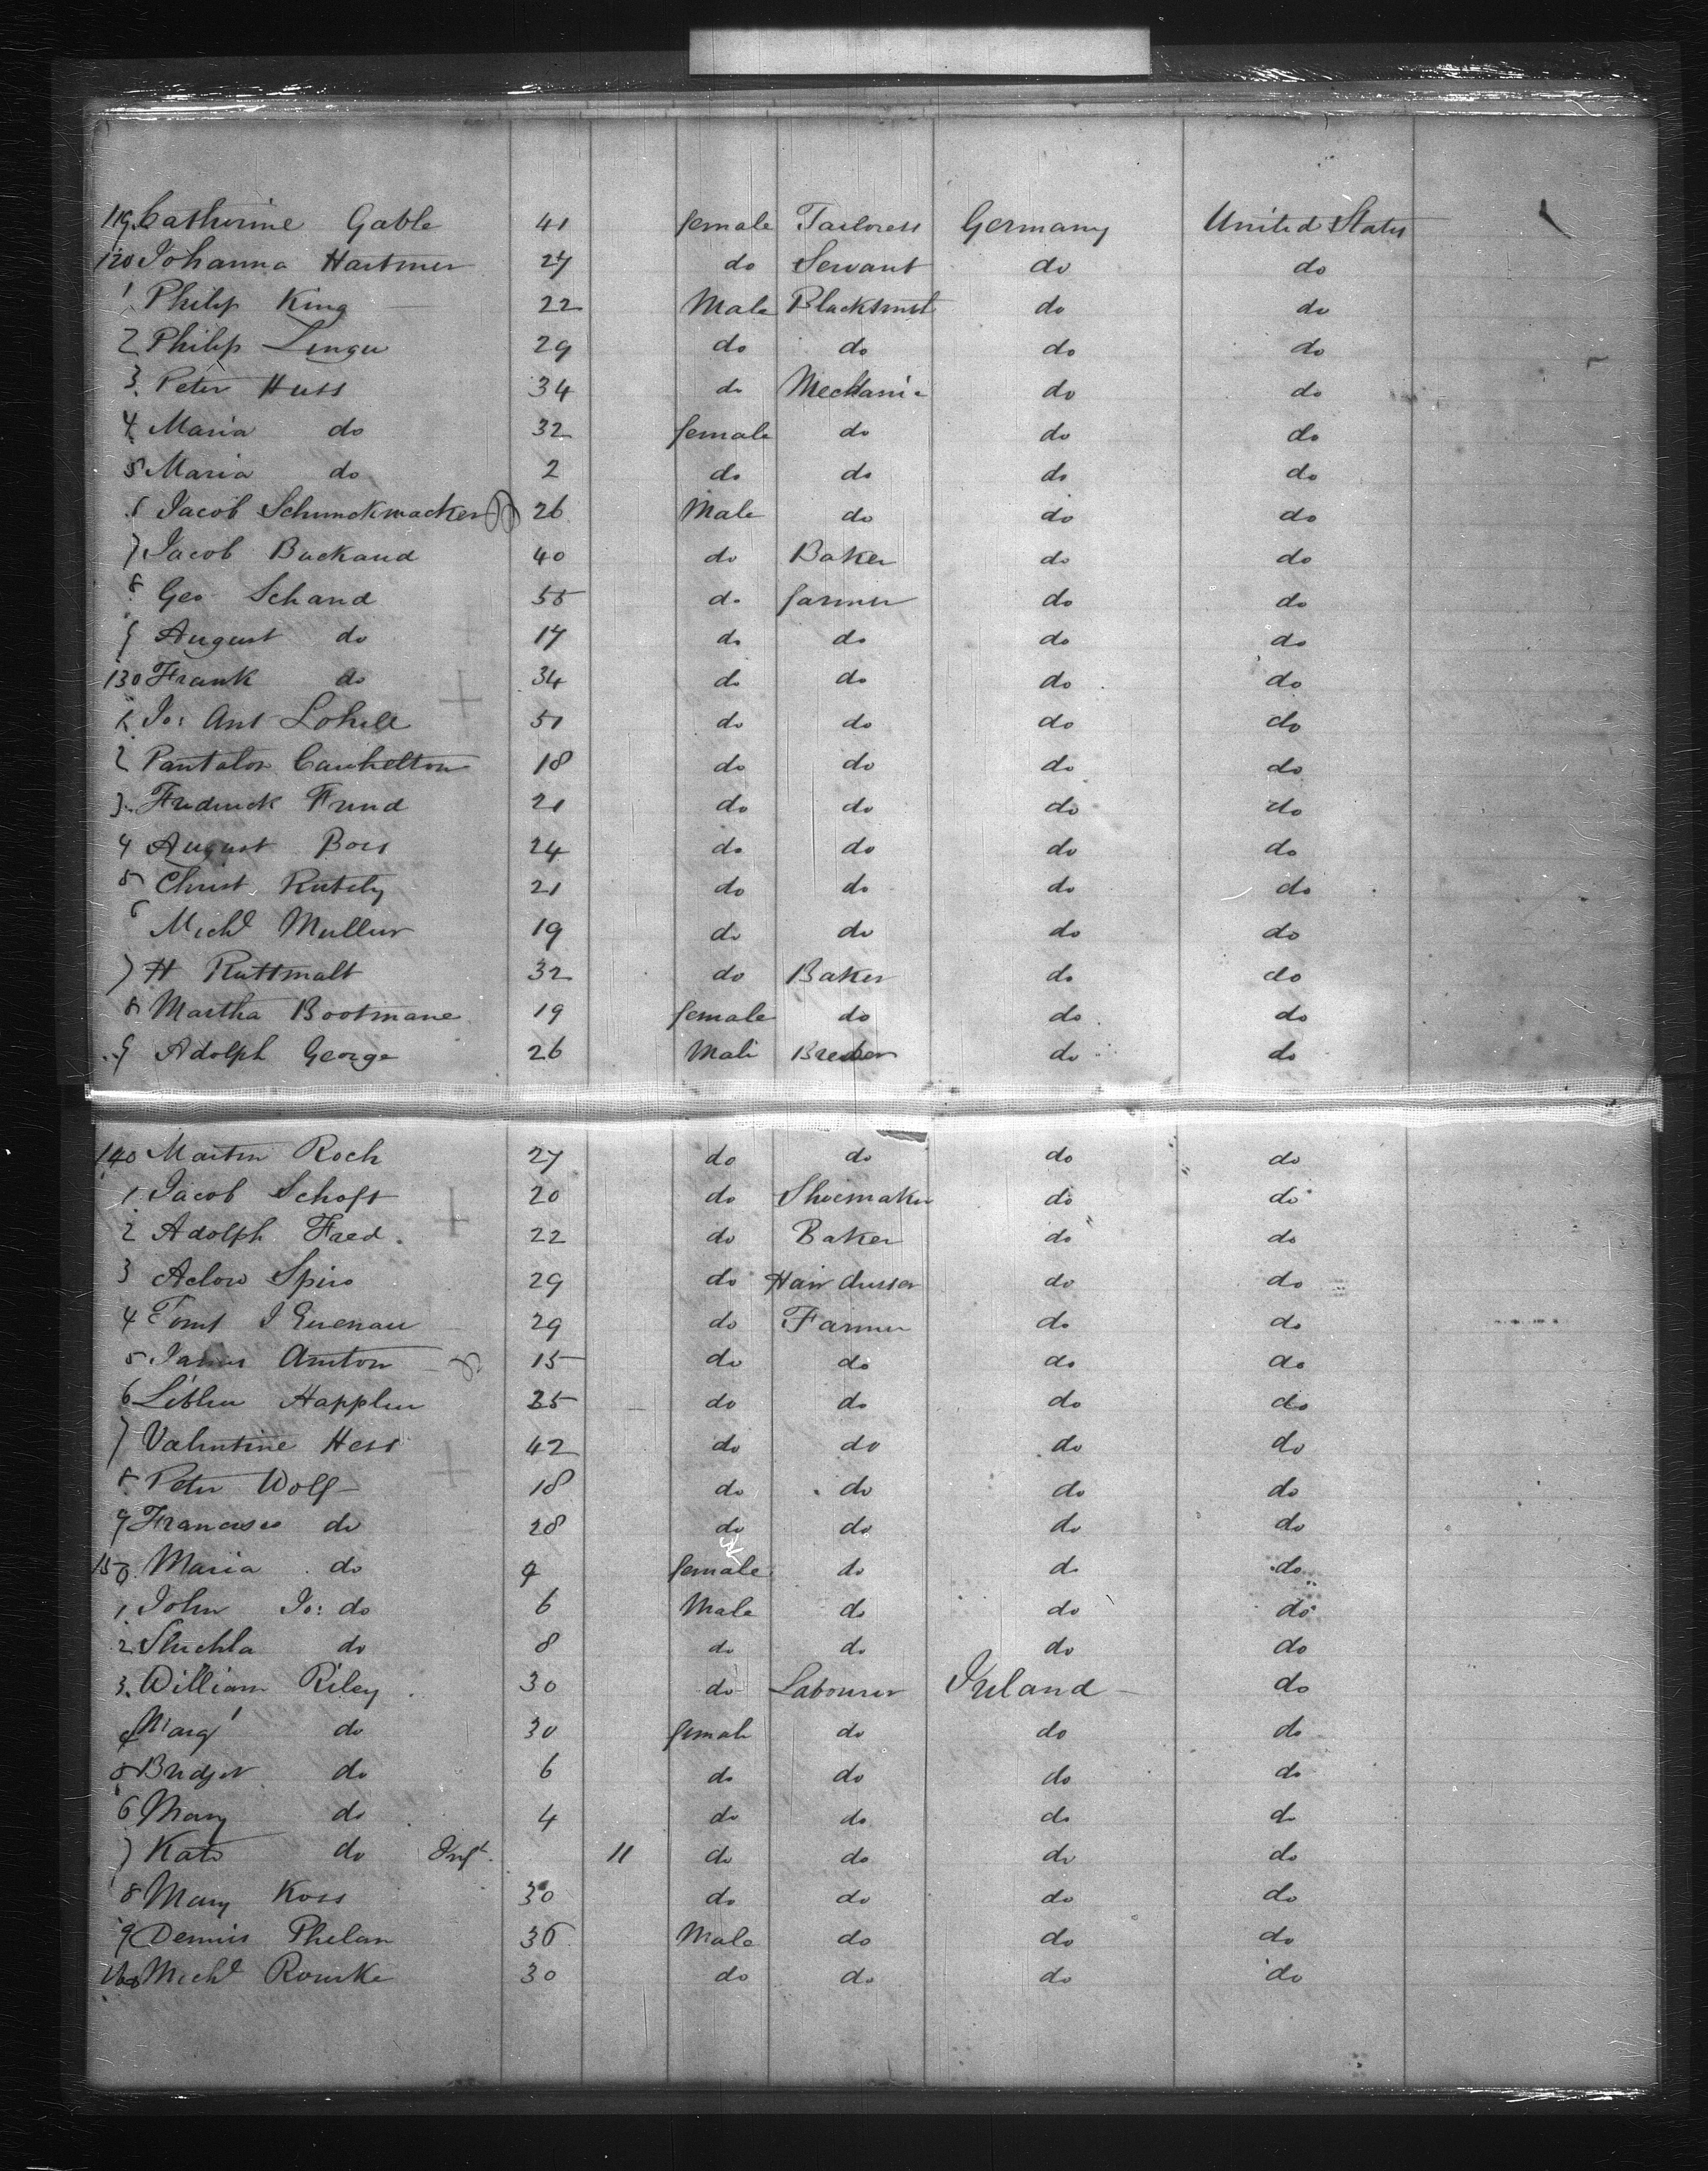 119 Catherine Gable 41 female Tailoress Germany United States
120 Johanna Hartmer 27 do Servant do do
1 Philip King 22 Male Blacksmit do do
2 Philip 29 do do do do
3 Peter Huss 34 do Mechanic do do
4 Maria do 32 female do do do
5 Maria do 2 do do do do
6 Jacob Schumckmacker 26 Male do do do
7 Jacob Backaud 40 do Baker do do
8 Geo Schand 55 do farmer do do
9 August do 17 do do do do
130 Frank do 34 do do do do
1 Jo: Ant 51 do do do do
2 Pantalon 18 do do do do
3 Fredrick Frund 21 do do do do
4 August Boss 24 do do do do
5 Christ 21 do do do do
6 Michl Muller 19 do do do do
7 H Ruttmalt 32 do Baker do do
8 Martha Bootmane 19 female do do do
9 Adolph George 26 Male do do
140 Martin Roch 27 do do do do
1 Jacob Schoft 20 do Shoemaker do do
2 Adolph Fred. 22 do Baker do do
3 Spiro 29 do Hair dresser do do
4 29 do Farmer do do
5 15 do do do do
6 35 do do do do
7 Valentine Hess 42 do do do do
8 Peter Wolf 18 do do do do
9 Francisco do 28 do do do do
150 Maria do 9 female do do do
1 John Jo: do 6 Male do do do
2 do 8 do do do do
3 William Riley 30 do Labourer Ireland do
4 Margt do 30 female do do do
5 Bridget do 6 do do do do
6 Mary do 4 do do do do
7 Kate do Inft. 11 do do do do
8 Mary Koss 30 do do do do
9 Dennis Phelan 36 Male do do do
160 Michl Rourke 30 do do do do